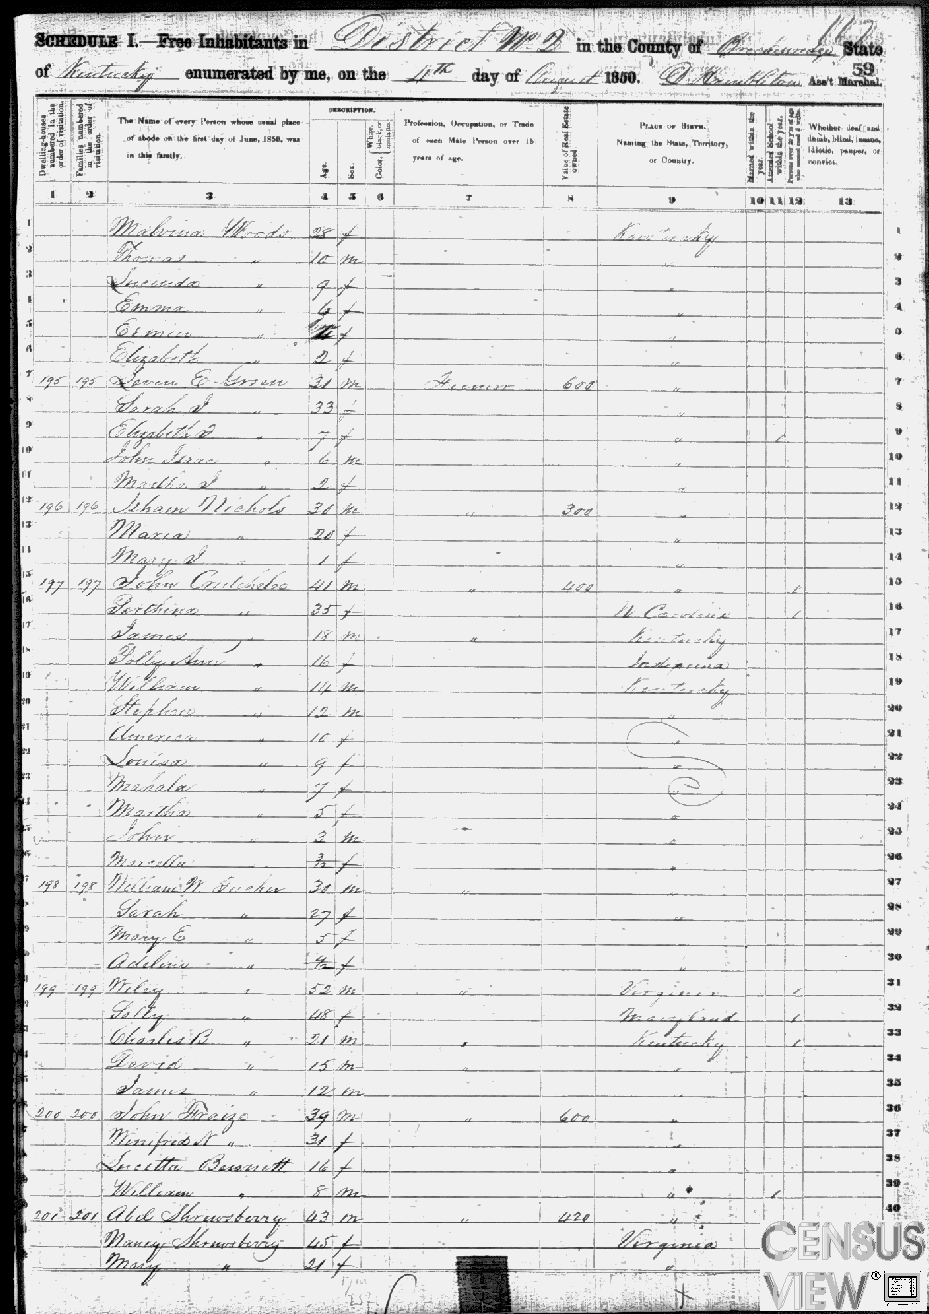 SCHEDULE I.—Free Inhabitants in District No 2 in the County of State
of Kentucky enumerated by me, on the 4th day of August 1850. Ass't Marshal.
59
Dwelling-houses numbered in the order of visitation.
Families numbered in the order of visitation.
The Name of every Person whose usual place of abode on the first day of June, 1850, was in this family.
DESCRIPTION.
Age.
Sex.
Color, White, black, or mulatto.
Profession, Occupation, or Trade of each Male Person over 15 years of age.
Value of Real Estate owned
PLACE OF BIRTH. Naming the State, Territory, or Country.
Married within the year.
Attended School within the year.
Persons over 20 y'rs of age who cannot read & write.
Whether deaf and dumb, blind, insane, idiotic, pauper, or convict.
1 2 3 4 5 6 7 8 9 10 11 12 13
1 Malvina Woods 28 f Kentucky 1
2 Thomas " 10 m " 2
3 Lucinda " 9 f " 3
4 Emma " 6 f " 4
5 " f " 5
6 Elizabeth " 2 f " 6
7 195 195 Green 31 m Farmer 600 " 7
8 Sarah J " 33 f " 8
9 Elizabeth " 7 f " 1 9
10 John " 6 m " 10
11 Martha J " 2 f " 11
12 196 196 Isham Nichols 30 m " 300 " 12
13 Maria " 20 f " 13
14 Mary J " 1 f " 14
15 197 197 John 41 m " 400 " 1 15
16 Parthina " 35 f N Carolina 1 16
17 James " 18 m " Kentucky 17
18 Polly Ann " 16 f Indiana 18
19 William " 14 m Kentucky 19
20 Stephen " 12 m " 20
21 America " 10 f " 21
22 Louisa " 9 f " 22
23 Mahala " 7 f " 23
24 Martha " 5 f " 24
25 John " 3 m " 25
26 Marcella f " 26
27 198 198 William W 30 m " " 27
28 Sarah " 27 f " 28
29 Mary E " 5 f " 29
30 " f " 30
31 199 199 Wiley " 52 m " Virginia 1 31
32 " 48 f Maryland 1 32
33 Charles B " 21 m " Kentucky 1 33
34 David " 15 m " " 34
35 James " 12 m " 35
36 200 200 John Fraize 39 m " 600 " 36
37 Winifred N " 31 f " 37
38 Lucetta Bennett 16 f " 38
39 William " 8 m " 1 39
40 201 201 Abel Shrewsberry 43 m " 420 " 40
Nancy Shrewsberry 45 f Virginia
Mary " 21 f "
CENSUS
VIEW®